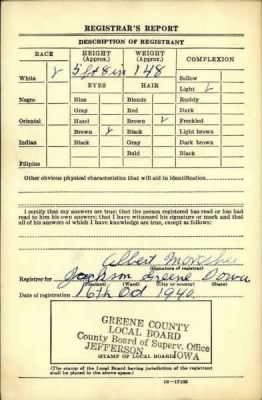 REGISTRAR'S REPORT
DESCRIPTION OF REGISTRANT
RACE HEIGHT (Approx.) WEIGHT (Approx.) COMPLEXION
White ✓ 5 ft 8 in 148 Sallow
EYES HAIR Light ✓
Negro Blue Blonde Ruddy
Gray Red Dark
Oriental Hazel Brown ✓ Freckled
Brown ✓ Black Light brown
Indian Black Gray Dark brown
Bald Black
Filipino
Other obvious physical characteristics that will aid in identification
I certify that my answers are true; that the person registered has read or has had
read to him his own answers; that I have witnessed his signature or mark and that
all of his answers of which I have knowledge are true, except as follows:
Albert
(Signature of registrar)
Registrar for Jackson Greene Iowa
(Precinct) (Ward) (City or county) (State)
Date of registration 16th Oct 1940.
GREENE COUNTY
LOCAL BOARD
County Board of Superv. Office
JEFFERSON IOWA
(STAMP OF LOCAL BOARD)
(The stamp of the Local Board having jurisdiction of the registrant
shall be placed in the above space.)